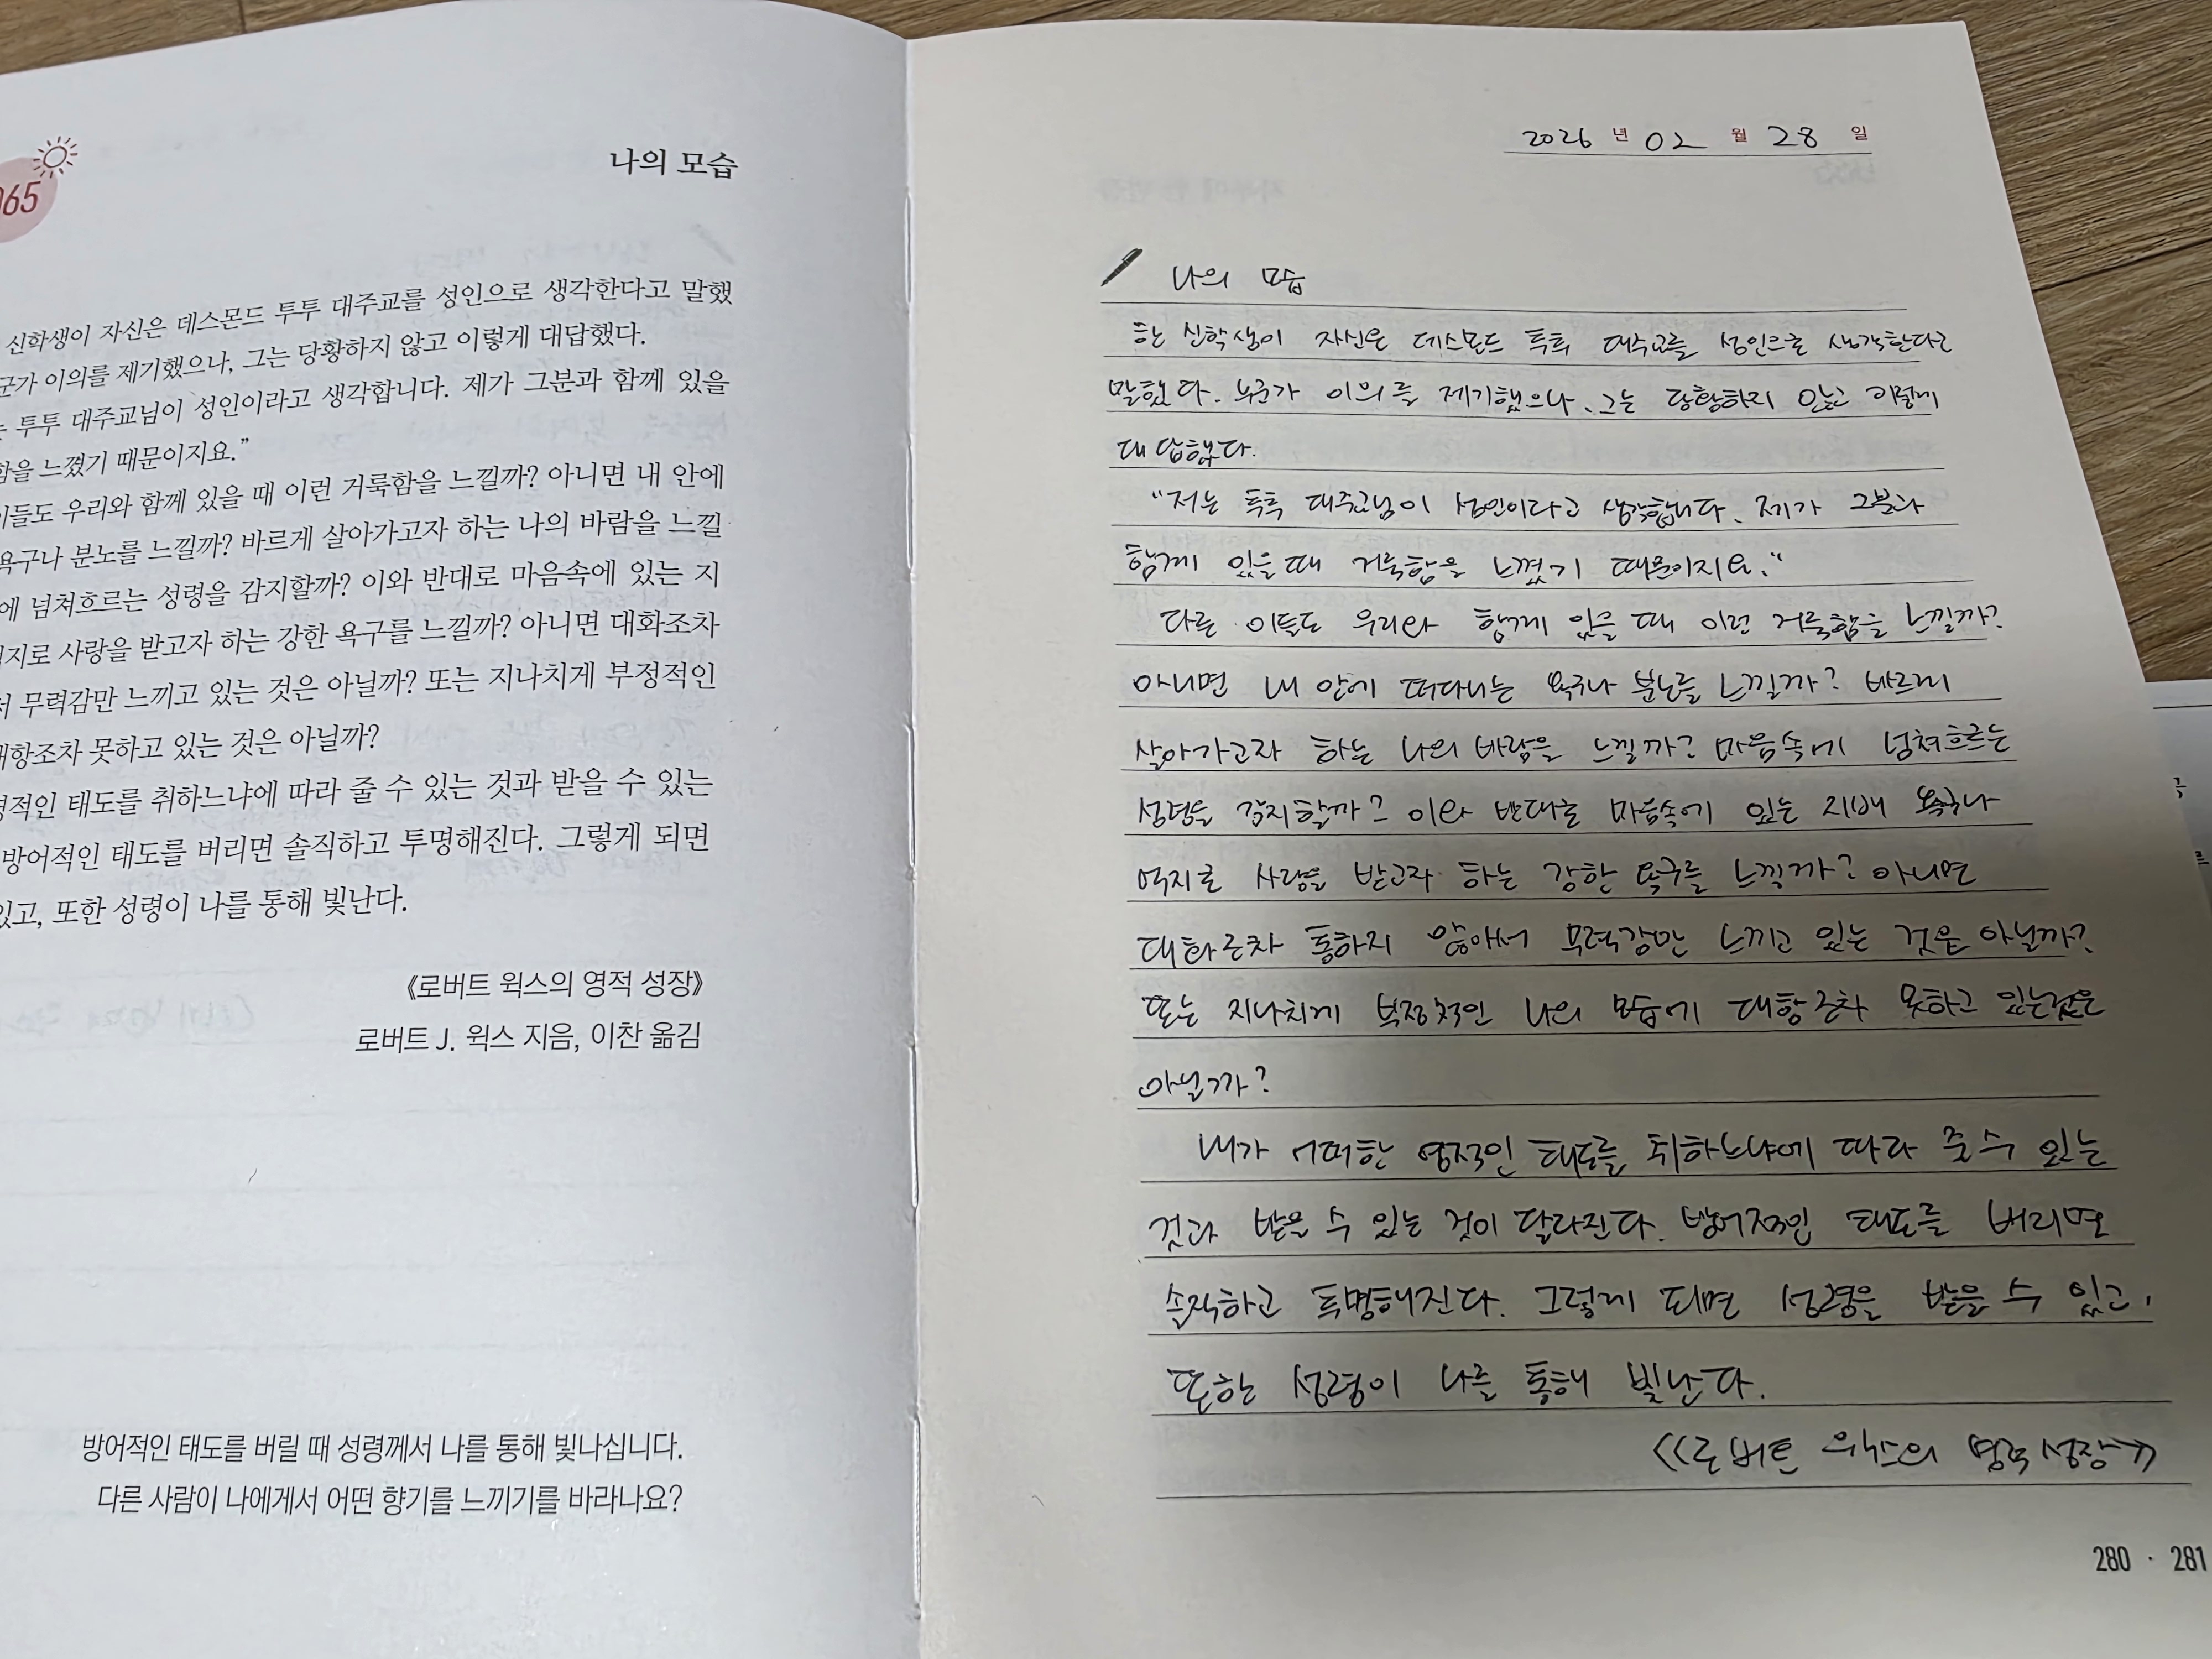 065
나의 모습
신학생이 자신은 데스몬드 투투 대주교를 성인으로 생각한다고 말했
군가 이의를 제기했으나, 그는 당황하지 않고 이렇게 대답했다.
는 투투 대주교님이 성인이라고 생각합니다. 제가 그분과 함께 있을
함을 느꼈기 때문이지요.”
이들도 우리와 함께 있을 때 이런 거룩함을 느낄까? 아니면 내 안에
욕구나 분노를 느낄까? 바르게 살아가고자 하는 나의 바람을 느낄
에 넘쳐흐르는 성령을 감지할까? 이와 반대로 마음속에 있는 지
억지로 사랑을 받고자 하는 강한 욕구를 느낄까? 아니면 대화조차
서 무력감만 느끼고 있는 것은 아닐까? 또는 지나치게 부정적인
대항조차 못하고 있는 것은 아닐까?
영적인 태도를 취하느냐에 따라 줄 수 있는 것과 받을 수 있는
방어적인 태도를 버리면 솔직하고 투명해진다. 그렇게 되면
있고, 또한 성령이 나를 통해 빛난다.
《로버트 윅스의 영적 성장》
로버트 J. 윅스 지음, 이찬 옮김
방어적인 태도를 버릴 때 성령께서 나를 통해 빛나십니다.
다른 사람이 나에게서 어떤 향기를 느끼기를 바라나요?
2026 년 02 월 28 일
나의 모습
한 신학생이 자신은 데스몬드 투투 대주교를 성인으로 생각한다고
말했다. 누군가 이의를 제기했으나, 그는 당황하지 않고 이렇게
대답했다.
“저는 투투 대주교님이 성인이라고 생각합니다. 제가 그분과
함께 있을 때 거룩함을 느꼈기 때문이지요.”
다른 이들도 우리와 함께 있을 때 이런 거룩함을 느낄까?
아니면 내 안에 떠다니는 욕구나 분노를 느낄까? 바르게
살아가고자 하는 나의 바람을 느낄까? 마음속에 넘쳐흐르는
성령을 감지할까? 이와 반대로 마음속에 있는 지배 욕구나
억지로 사랑을 받고자 하는 강한 욕구를 느낄까? 아니면
대화조차 통하지 않아서 무력감만 느끼고 있는 것은 아닐까?
또는 지나치게 부정적인 나의 모습에 대항조차 못하고 있는것은
아닐까?
내가 어떠한 영적인 태도를 취하느냐에 따라 줄 수 있는
것과 받을 수 있는 것이 달라진다. 방어적인 태도를 버리면
솔직하고 투명해진다. 그렇게 되면 성령을 받을 수 있고,
또한 성령이 나를 통해 빛난다.
《로버트 윅스의 영적 성장》
280 · 281